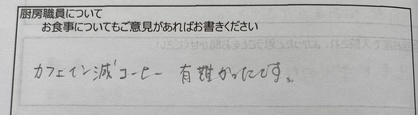 厨房職員について
お食事についてもご意見があればお書きください
カフェイン減コーヒー 有難かったです。